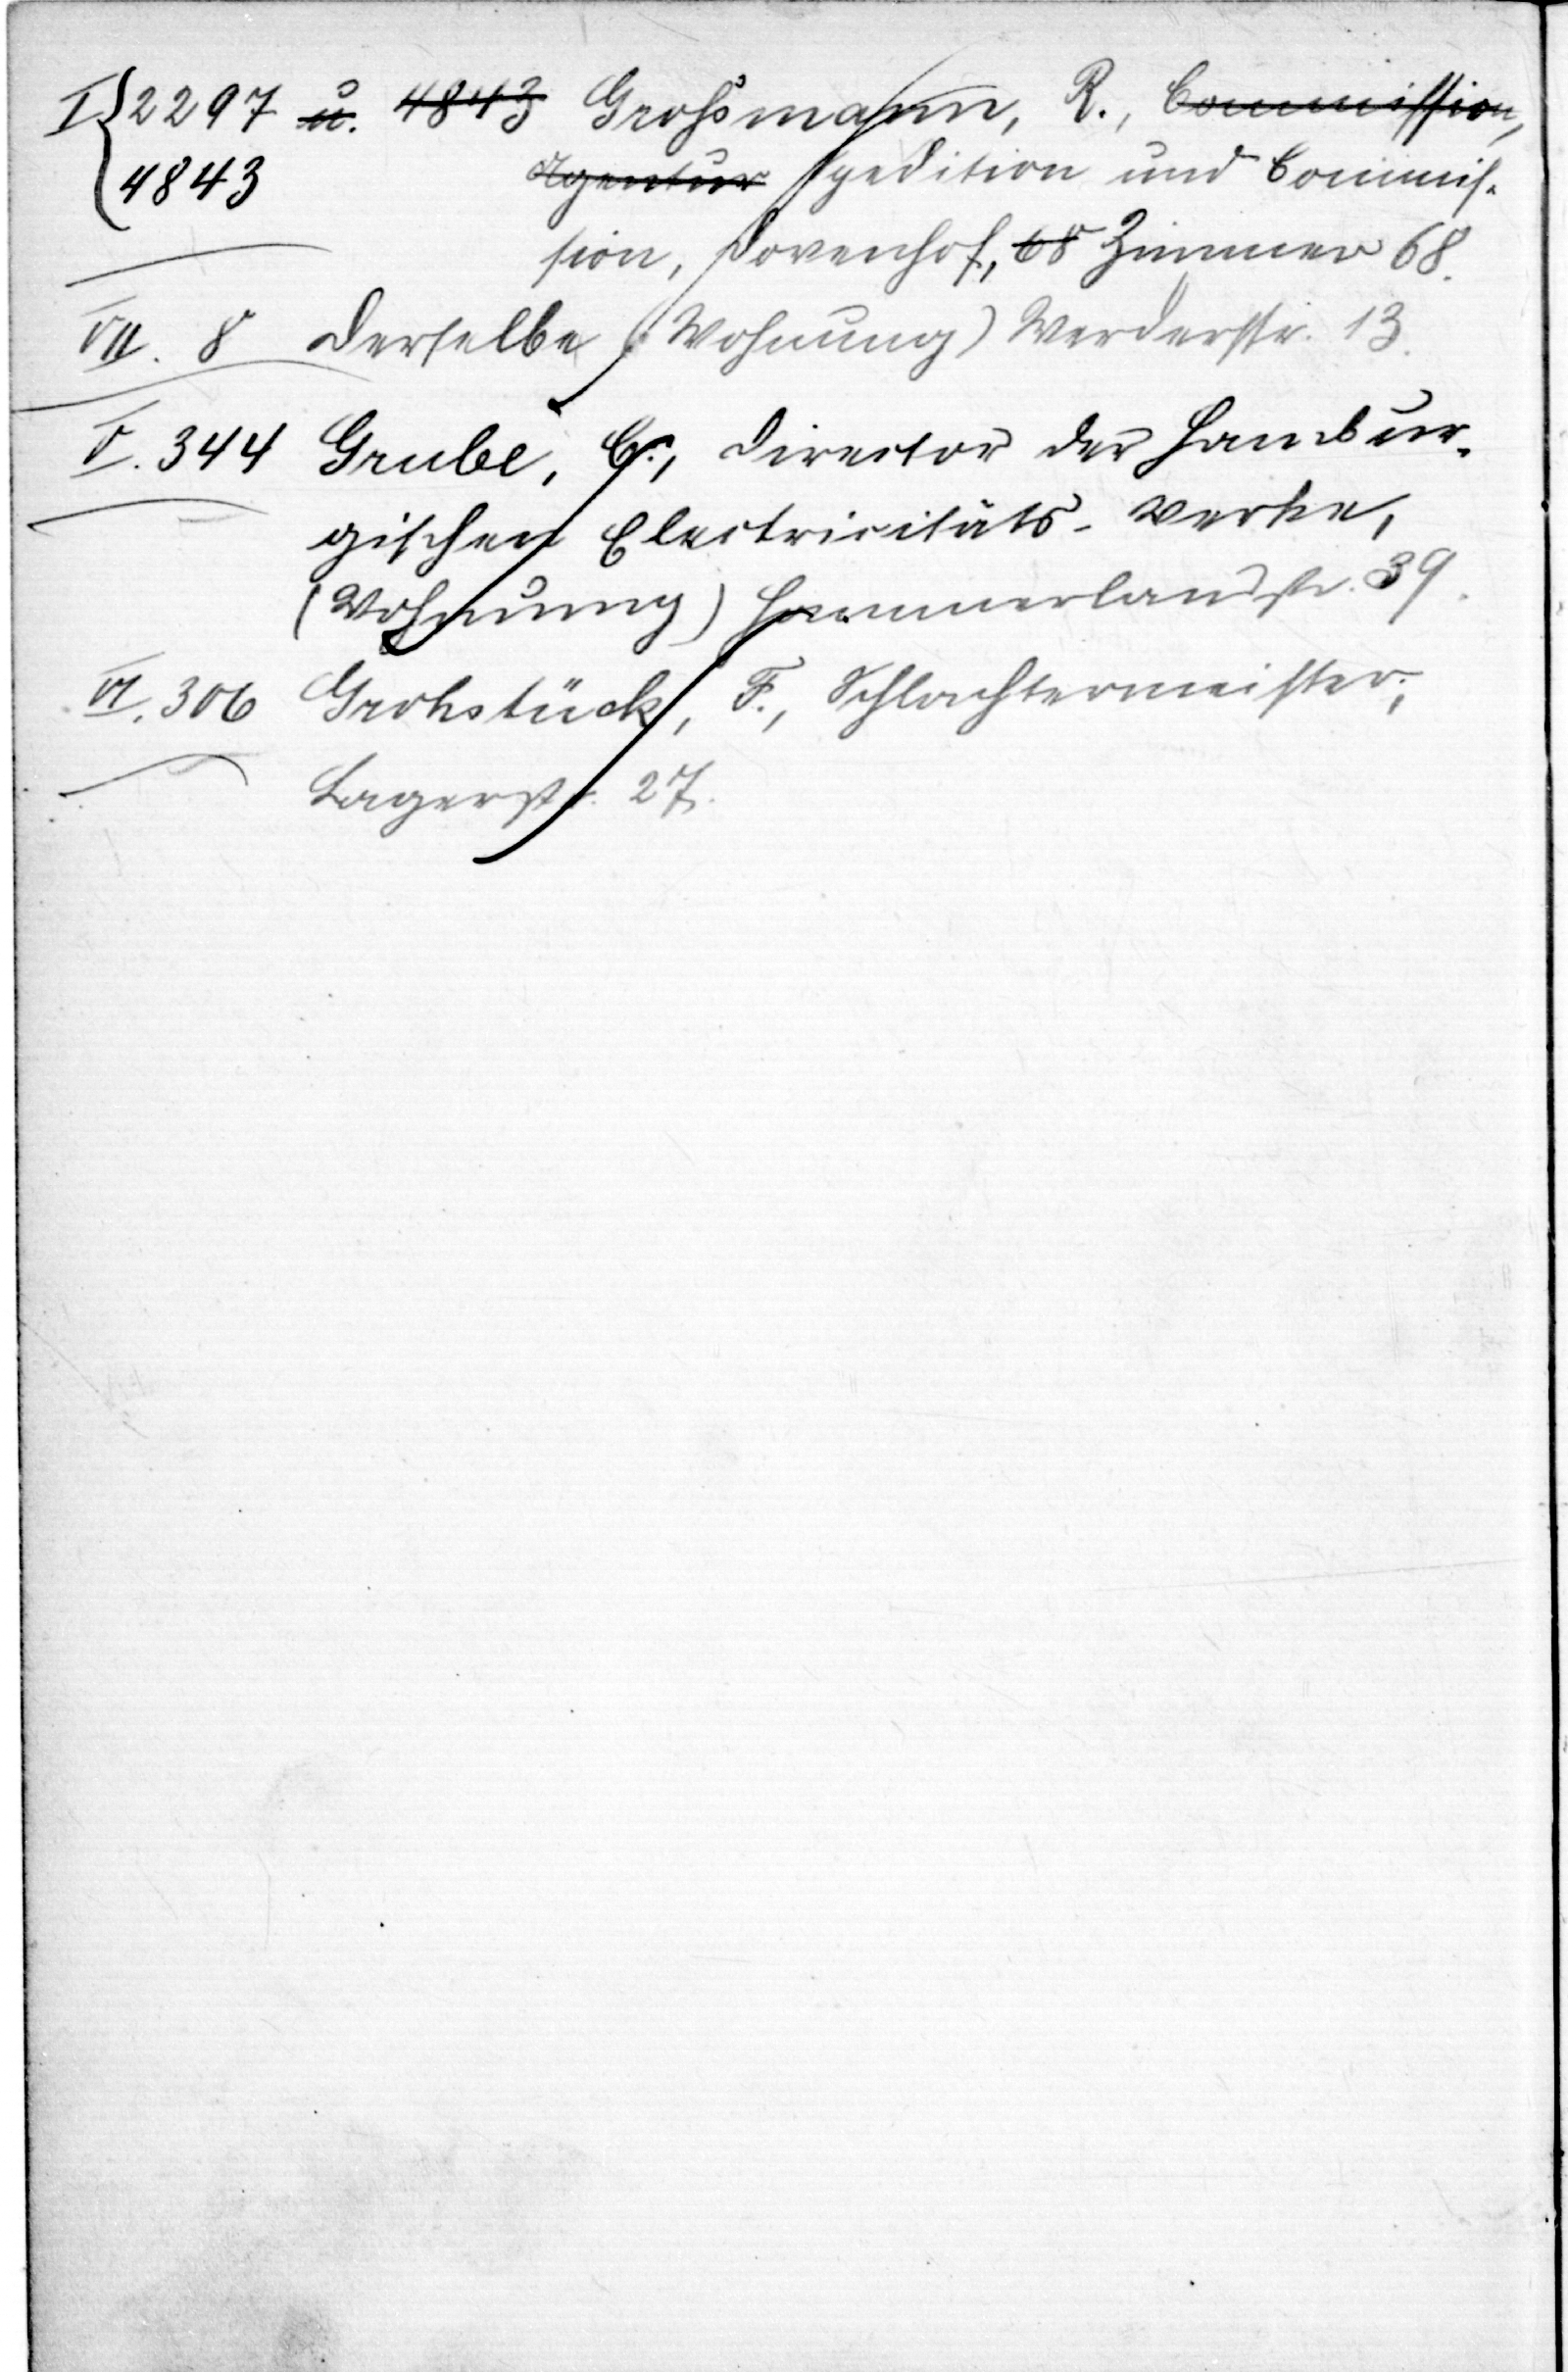 I { 2297 u. 4843 Großmann, R., Commission,
4843 Agentur Spedition und Commis-
sion, Dovenhof, 68 Zimmer 68.
VII. 8 Derselbe (Wohnung) Werderstr. 13.
V. 344 Grube, C., Director der Hambur-
gischen Electricitäts-Werke,
(Wohnung) Hammerlandstr. 39.
VI. 306 Grohstück, F., Schlachtermeister,
Lagerstr. 27.